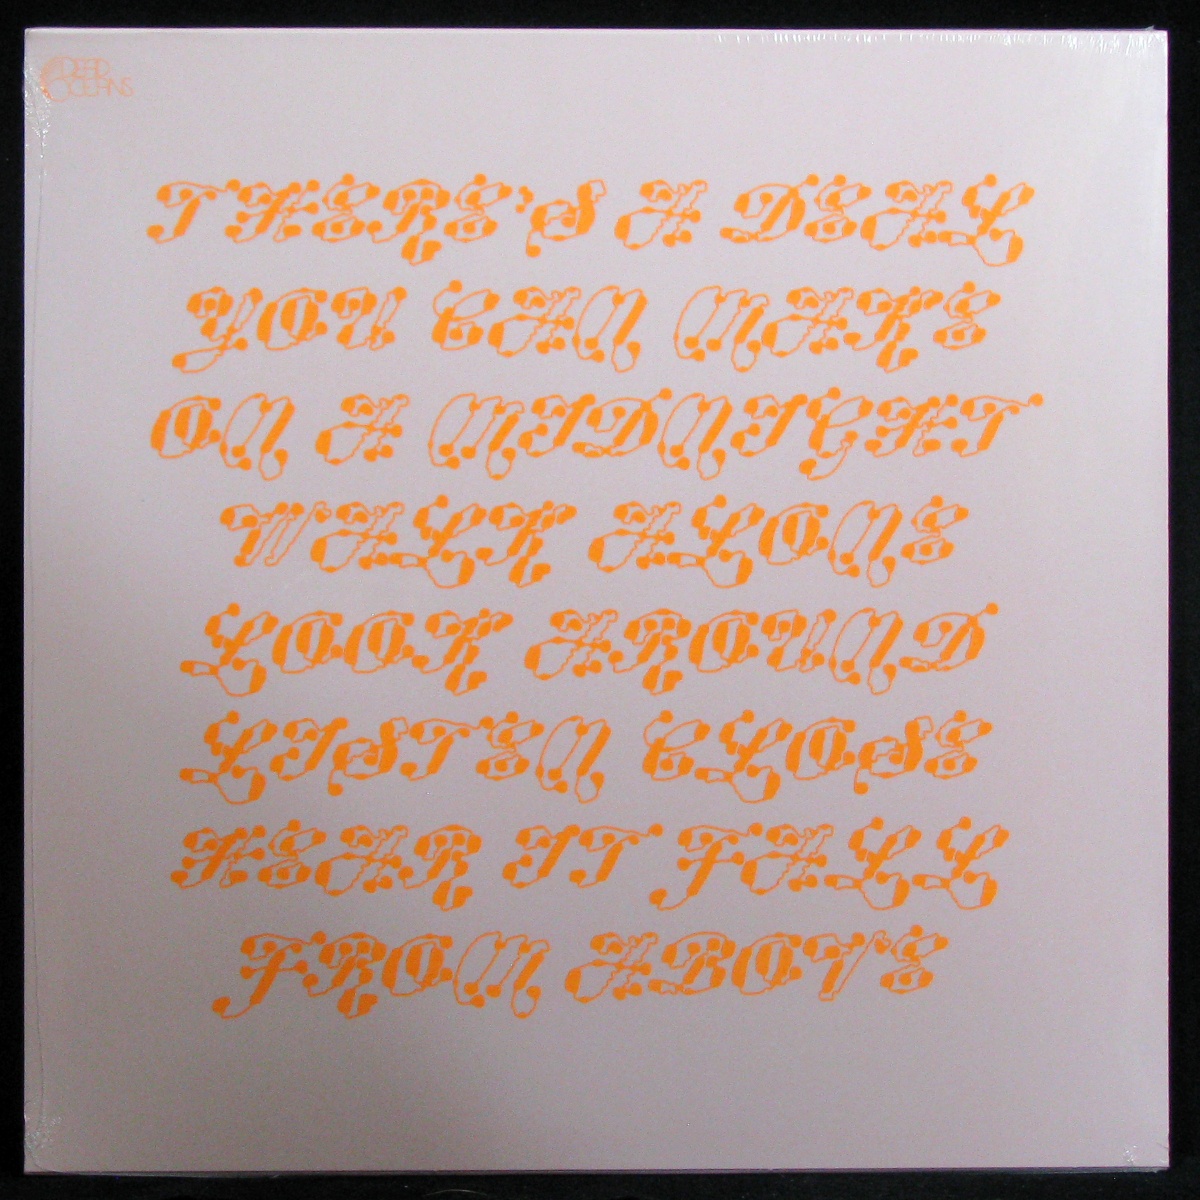 DEAD
OCEANS
THERE'S A DEAL
YOU CAN MAKE
ON A MIDNIGHT
WALK ALONE
LOOK AROUND
LISTEN CLOSE
HEAR IT FALL
FROM ABOVE